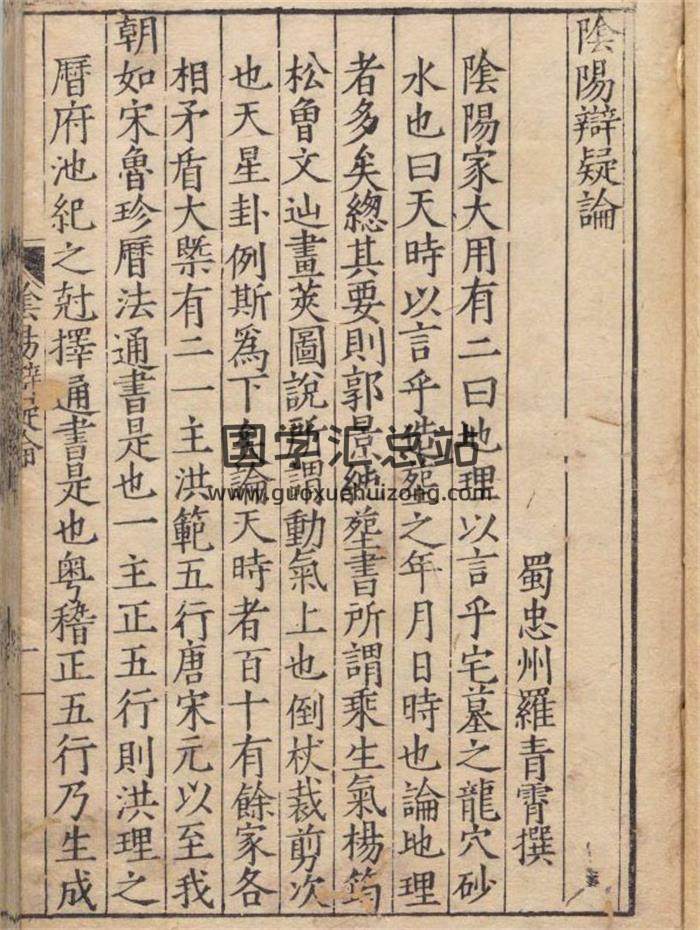 陰陽辯疑論
蜀忠州羅青霄撰
陰陽家大用有二曰地理以言乎宅墓之龍穴砂
水也曰天時以言乎造葬之年月日時也論地理
者多矣總其要則郭景純葬書所謂乘生氣楊筠
松曾文辿畫莢圖說所謂動氣上也倒杖裁剪次
也天星卦例斯爲下矣論天時者百十有餘家各
相矛盾大槩有二一主洪範五行唐宋元以至我
朝如宋魯珍曆法通書是也一主正五行則洪理之
曆府池紀之尅擇通書是也粤稽正五行乃生成
陰陽辯疑論
一
国学汇总站
www.guoxuehuizong.com